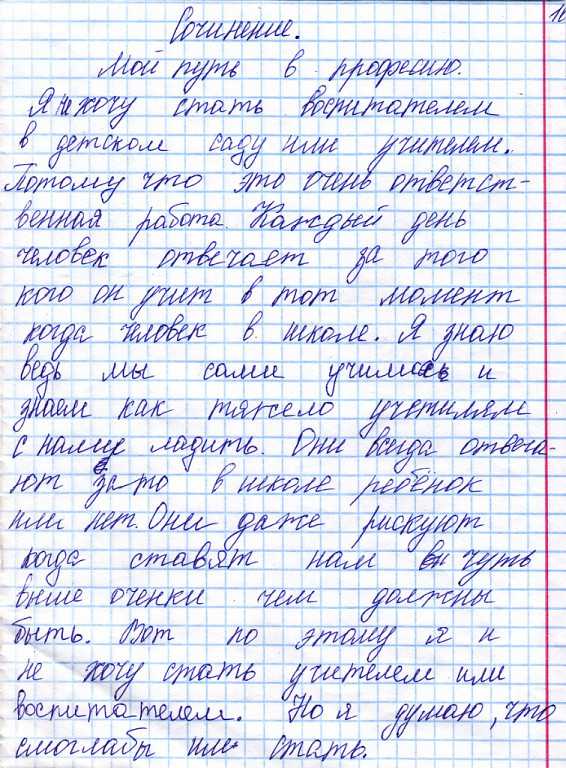 16
Сочинение.
Мой путь в професию.
Я не хочу стать воспитателем
в детском саду или учителем.
Потому что это очень ответст-
венная работа. Каждый день
человек отвечает за того
кого он учит в тот момент
когда человек в школе. Я знаю
ведь мы сами учимись и
знаем как тяжело учетилям
с нами ладить. Они всегда отвеча-
ют за то в школе ребёнок
или нет. Они даже рискуют
когда ставят нам чуть
выше оченки чем должны
быть. Вот по этому я и
не хочу стать учителем или
воспитателем. Но я думаю, что
смоглабы ими стать.